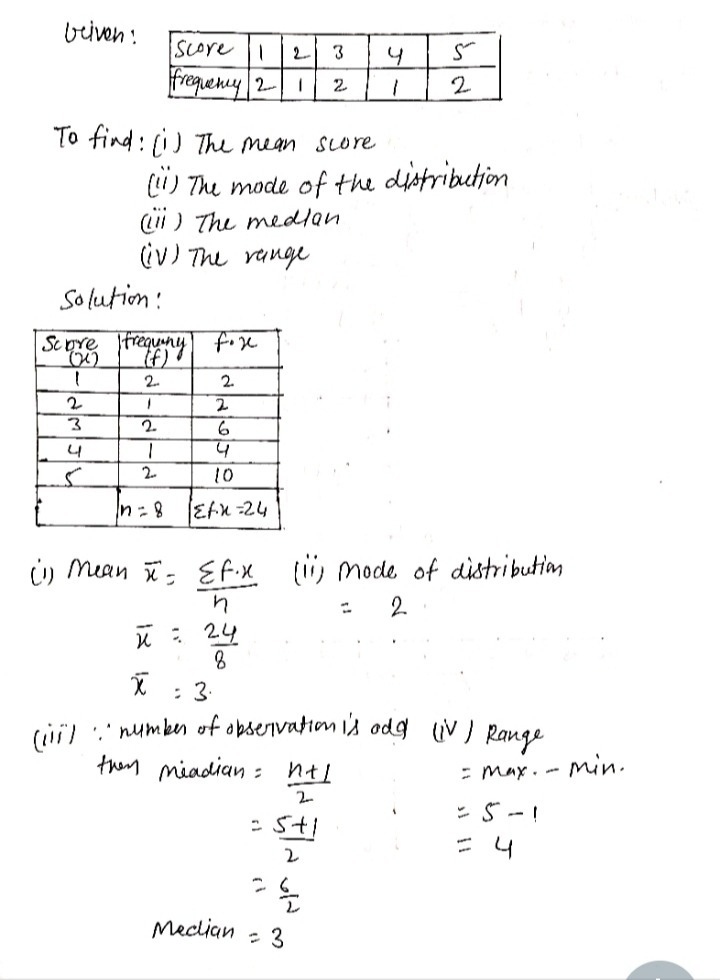 Given:
Score 1 2 3 4 5
frequency 2 1 2 1 2
To find: (i) The mean score
(ii) The mode of the distribution
(iii) The median
(iv) The range
Solution:
Score (x) frequency (f) f·x
1 2 2
2 1 2
3 2 6
4 1 4
5 2 10
n = 8 Σf.x = 24
(i) Mean x̄ = Σf·x / n
x̄ = 24 / 8
x̄ = 3.
(ii) Mode of distribution
= 2
(iii) ∵ number of observation is odd
then meadian = n+1 / 2
= 5+1 / 2
= 6 / 2
Median = 3
(iv) Range
= max. - min.
= 5 - 1
= 4